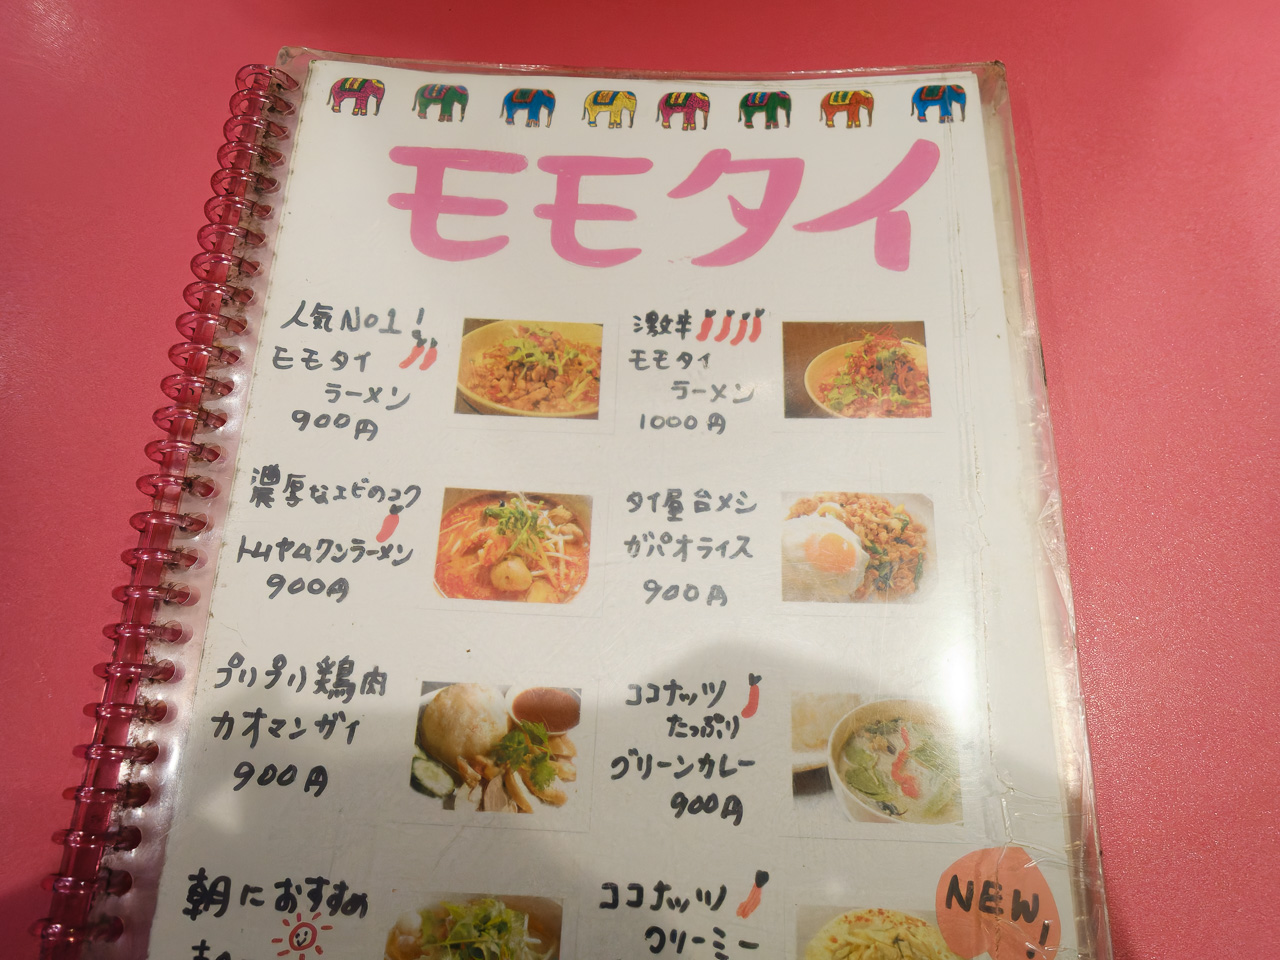 モモタイ
人気No1!
モモタイ
ラーメン
900円
激辛
モモタイ
ラーメン
1000円
濃厚なエビのコク
トムヤムクンラーメン
900円
タイ屋台メシ
ガパオライス
900円
プリプリ鶏肉
カオマンガイ
900円
ココナッツ
たっぷり
グリーンカレー
900円
朝におすすめ
ココナッツ
クリーミー
NEW!